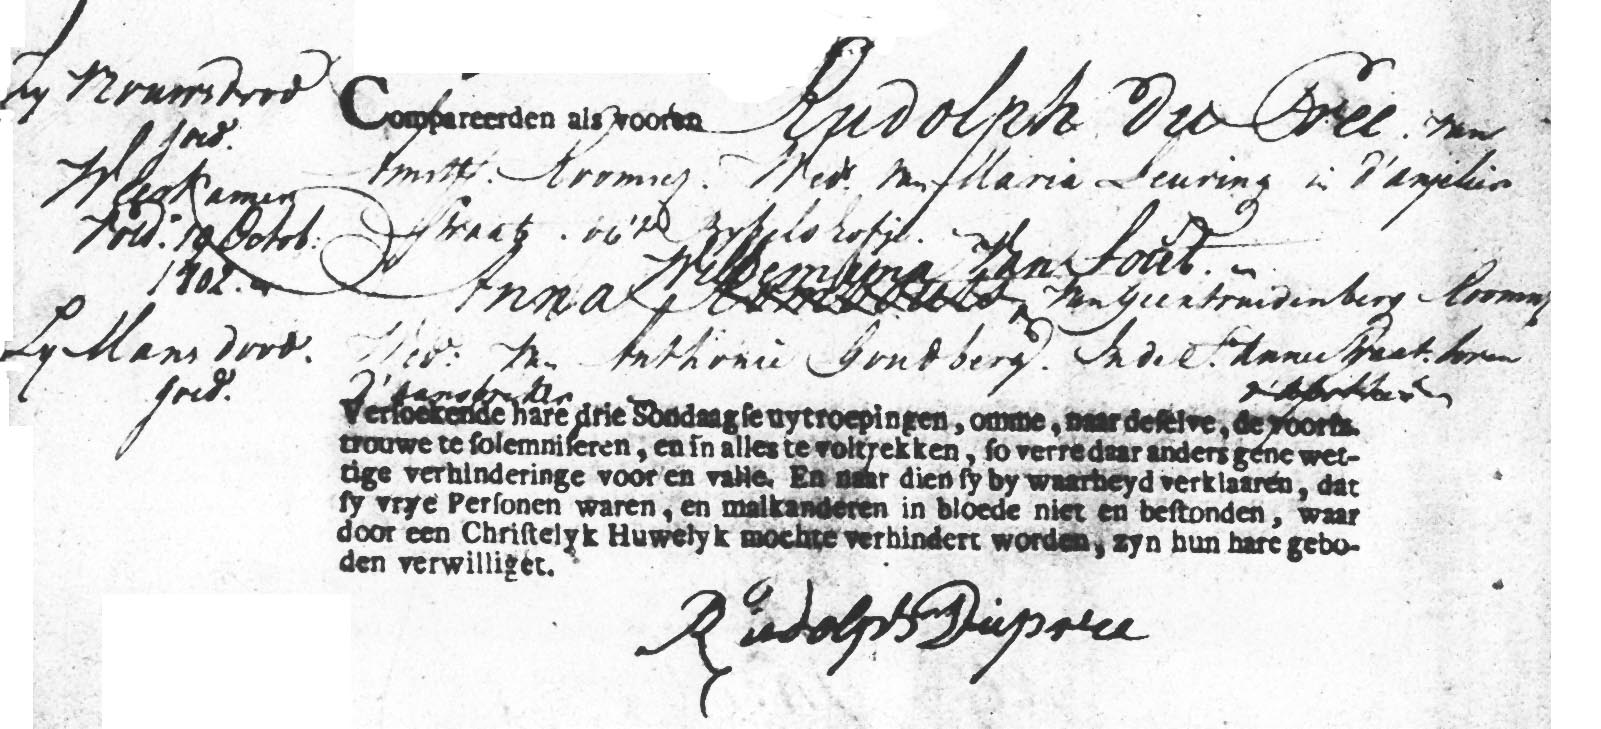 Zy Vrouws dood
goed.
Weeskamer
vold: 19 Octob:
1802.
Sy Mans dood.
goed.
Compareerden als vooren Rudolph Du Pree. van
Amstd. Rooms. Wed. van Maria Leuring in d'anjeliers
Straat.
Wilhemina van Hout.
Anna van Geentruidenberg Rooms
Wed: van Anthonie Goudberg. In de St. Anne Straat.
Versoekende hare drie Sondaagse uytroepingen, omme, naar deselve, de voorsz.
trouwe te solemniseren, en in alles te voltrekken, so verre daar anders gene wet-
tige verhinderinge voor en valle. En naar dien sy by waarheyd verklaaren, dat
sy vrye Personen waren, en malkanderen in bloede niet en bestonden, waar
door een Christelyk Huwelyk mochte verhindert worden, zyn hun hare gebo-
den verwilliget.
Rudolph Dupree